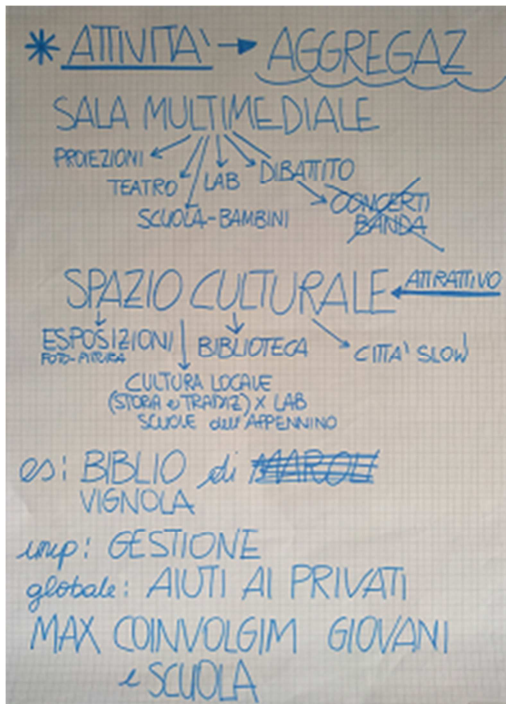 * ATTIVITA' → AGGREGAZ
SALA MULTIMEDIALE
PROIEZIONI
TEATRO
LAB
DIBATTITO
SCUOLA-BAMBINI
CONCERTI
BANDA
SPAZIO CULTURALE ← ATTRATTIVO
ESPOSIZIONI
FOTO-PITTURA
BIBLIOTECA
CITTA' SLOW
CULTURA LOCALE
(STORIA e TRADIZ) X LAB
SCUOLE dell'APPENNINO
es: BIBLIO di
VIGNOLA
imp: GESTIONE
globale: AIUTI AI PRIVATI
MAX COINVOLGIM GIOVANI
e SCUOLA